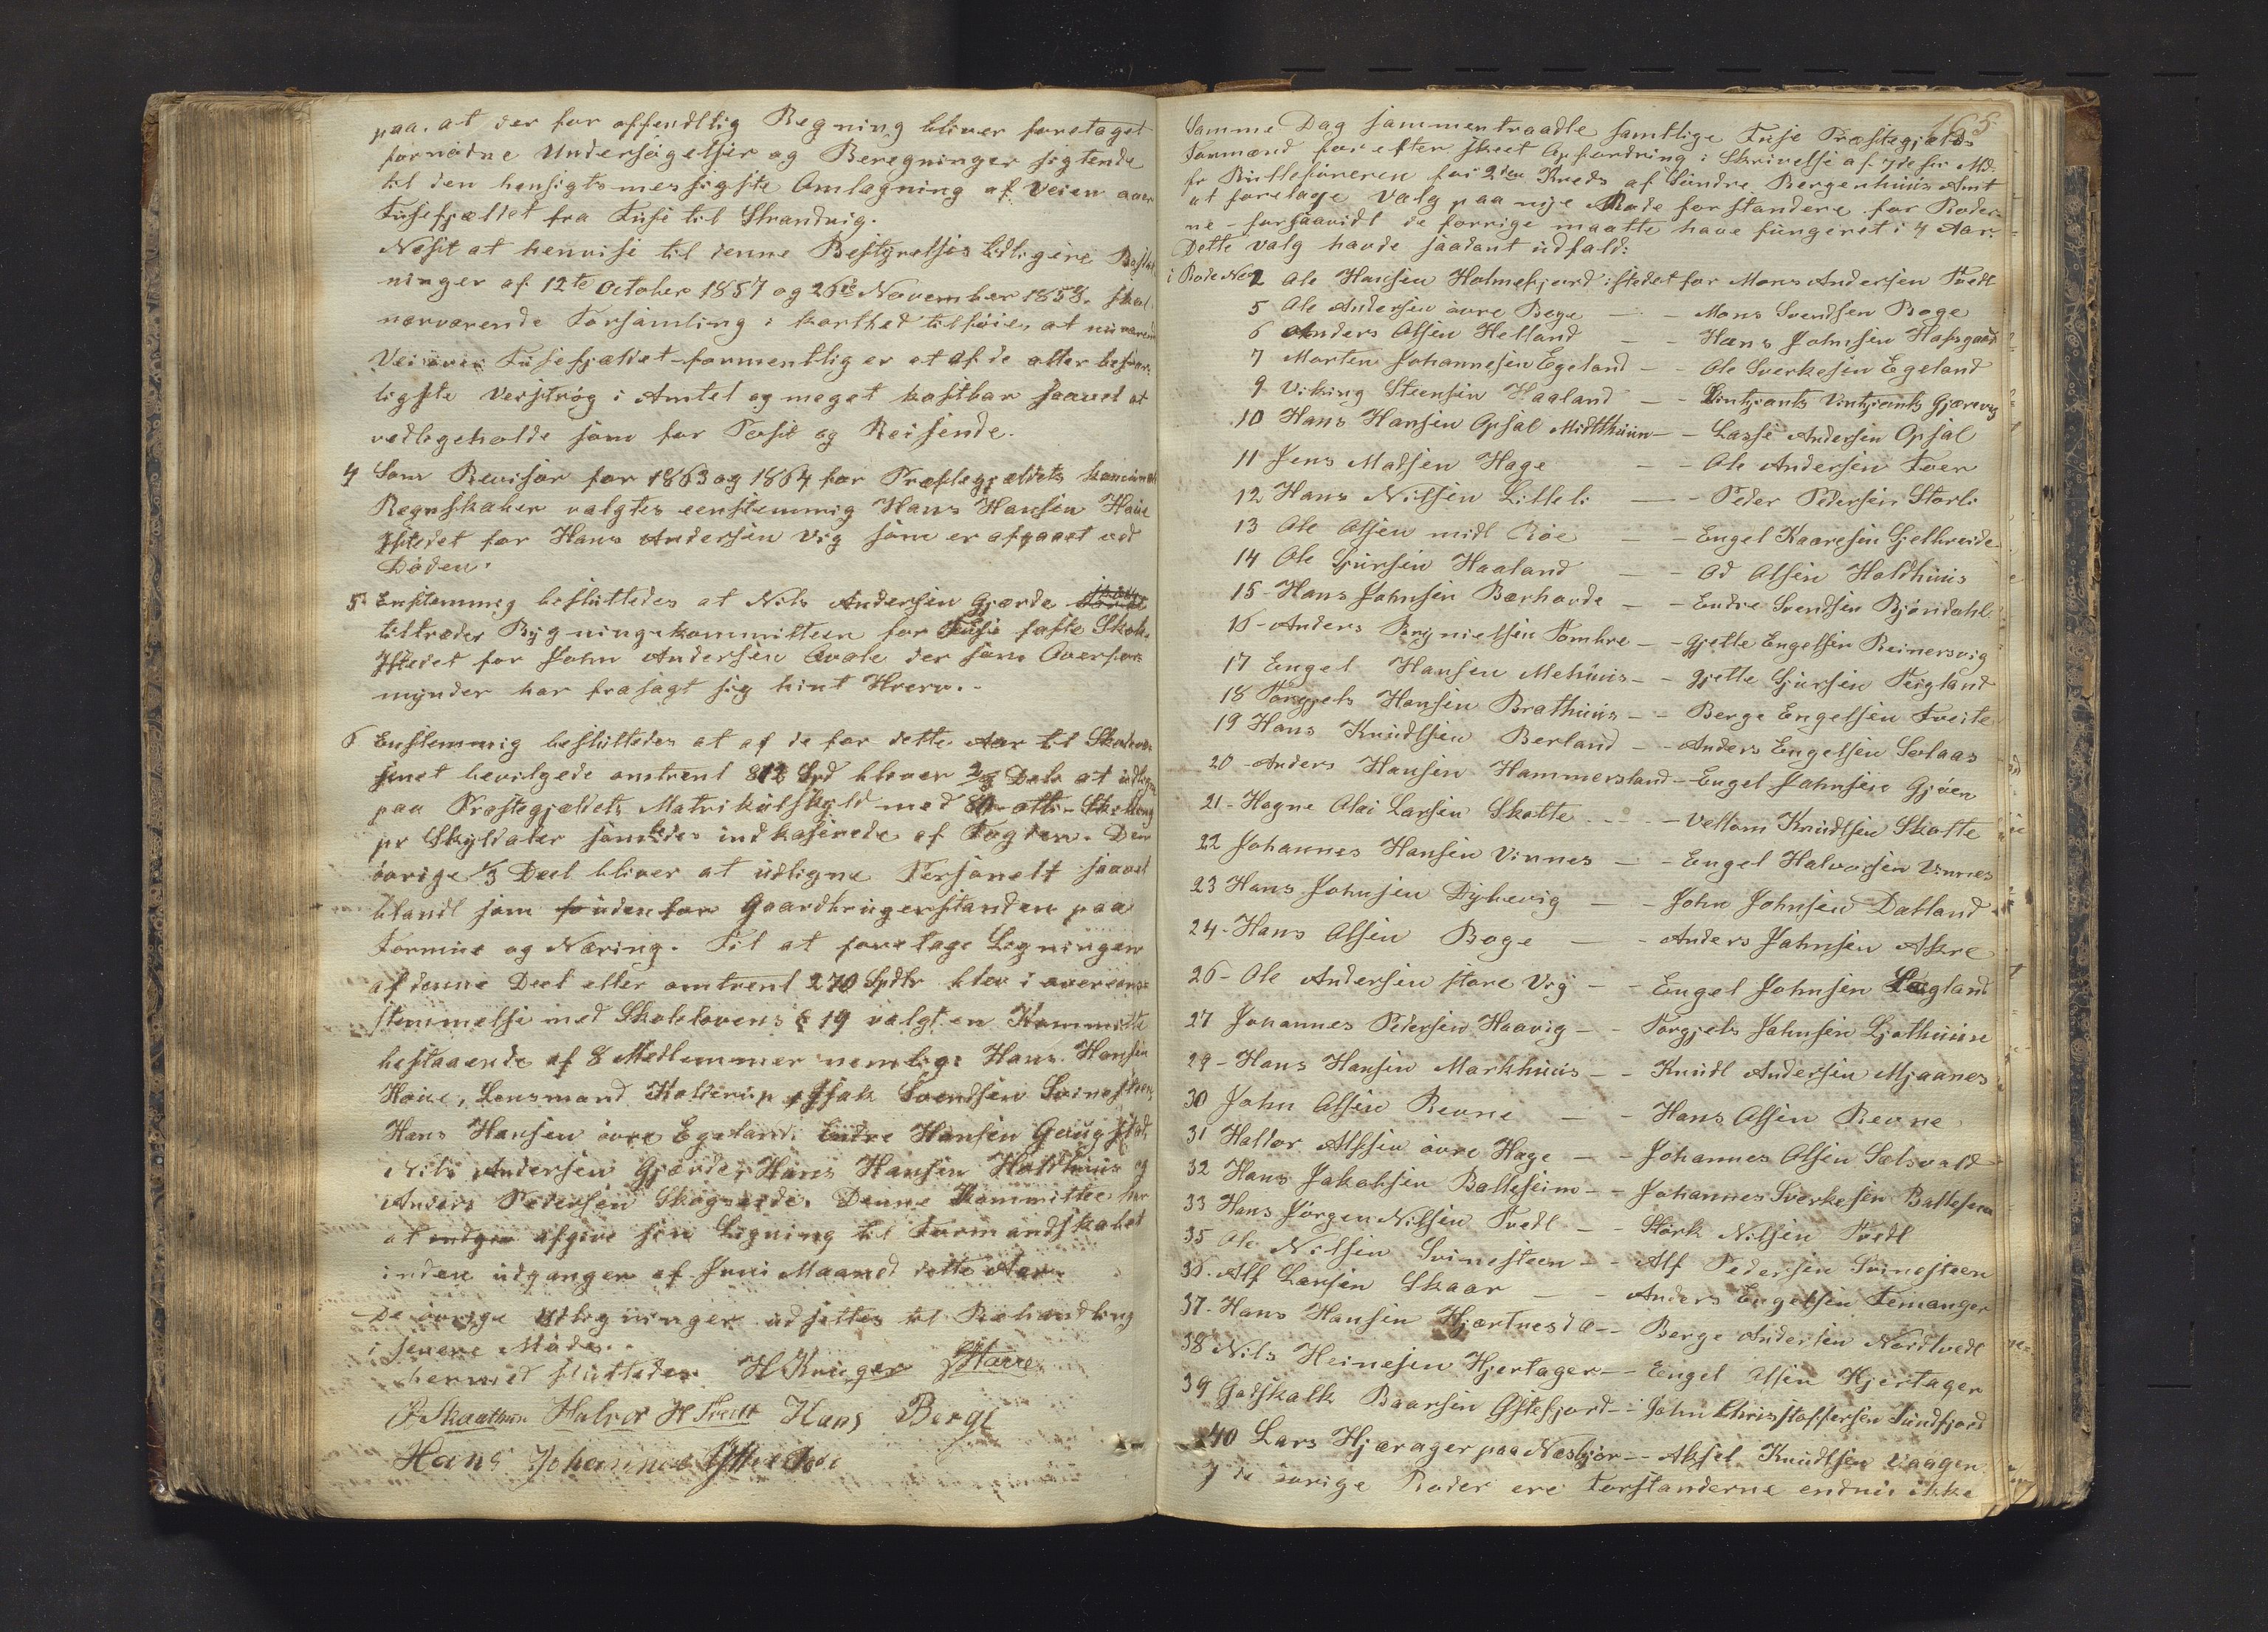 paa. at der for offendtlig Regning bliver foretaget
fornødne Undersøgelser og Beregninger sigtende
til den hensigtsmessigste Omlægning af Veien over
Fusefjældet fra Fuse til Strandvig.
Næst at henvise til denne Bestyrelses tidligere
ninger af 12te October 1857 og 26de November 1858. skal
nærværende Forsamling i korthed tilføie, at nuværende
Vei over Fusefjældet formentlig er et af de aller besvær-
ligste Veistrøg i Amtet og meget kostbar saavel at
vedligeholde som for Post og Reisende.
4 Som Revisor for 1863 og 1864 for Præstegjældets kommunale
Regnskaber valgtes eenstemmig Hans Hansen Høive
Istedet for Hans Andersen Vig som er afgaaet ved
Døden.
5 Enstemmig besluttedes at Nils Andersen Gjærde
tiltræder Bygningskommitteen for Fuse faste Skole
Istedet for John Andersen Qvale der som Overfor-
mynder har frasagt sig hint Hverv.-
6 Enstemmig besluttedes at af de for dette Aar til Skolevæ-
senet bevilgede omtrent 812 Spd bliver 2/3 Dele at udligne
paa Præstegjældets Matrikulskyld med otte Skilling
pr Skylddaler som indkasseredes af Fogden. Den
øvrige 1/3 Deel bliver at udligne Personelt saavel
blandt som udenfor Gaardbrugerstanden paa
Formue og Næring. Til at foretage Ligningen
af denne Deel eller omtrent 270 Spdlr blev i overeens-
stemmelse med Skolelovens § 19 valgt en Kommitte
bestaaende af 8 Medlemmer nemlig: Hans Hansen
Høive, Lensmand Kolderup, Isak Svendsen Svinesteen
Hans Hansen øvre Egeland. Endre Hansen Gaugstad,
Nils Andersen Gjærde, Hans Hansen Holdhuus og
Anders Pedersen Skogseide. Denne Kommittee har
at afgive sin Ligning til Formandskabet
inden udgangen af Juni Maaned dette Aar.
De øvrige Udligninger udsættes til Behandling
i senere Møder.
hermed sluttedes. H Kruger
Halvor H Tvedt Hans Berge
Hans Johannes
165
Samme Dag sammentraadte samtlige Fuse Præstegjælds
Formænd for efter skeet Opfordring i Skrivelse af 7de f. Md.
fr Brulleføreren for 2den Kreds af Søndre Bergenhuus Amt
at foretage Valg paa nye Rode forstandere for Roder-
ne - forsaavidt de forrige maatte have fungeret i 4 Aar.
Dette Valg havde saadant udfald:
i Rode No 2 Ole Hansen Holmefjord istedet for Mons Andersen Tvedt
5 Ole Andersen øvre Boge - - Mons Svendsen Boge
6 Anders Olsen Helland - - Hans Johnsen Hafsgaard
7 Morten Johannesen Egeland - - Ole Sverkesen Egeland
9 Viking Steensen Haaland - - Vintjants Vintjants Gjærevig
10 Hans Hansen Opsal Midtthuun - - Lasse Andersen Opsal
11 Jens Madsen Hage - - Ole Andersen Tven
12 Hans Nilsen Lilleli - - Peder Pedersen Storli
13 Ole Olsen midt Røe - - Engel Kaaresen Gjelbreide
14 Ole Sjursen Haaland - - Od Olsen Holdhuus
15 - Hans Johnsen Bærhovde - - Endre Svendsen Bjørndahl
16 - Anders Brynielsen Tombre - - Gjetle Engelsen Reinersvig
17 Engel Hansen Mehuus - - Gjetle Sjursen Teigland
18 Torgjels Hansen Brathuus - - Berge Engelsen Tveite
19 Hans Knudtsen Berland - - Anders Engelsen Solaas
20 - Anders Hansen Hammersland - Engel Johnsen Gjøen
21 - Hagne Olai Larsen Skotte - - Vellom Knudtsen Skotte
22 Johannes Hansen Vinnes - - Engel Halvorsen Vinnes
23 Hans Johnsen Dyhevig - - John Johnsen Datland
24 - Hans Olsen Boge - - Anders Johnsen Akre
26 - Ole Andersen store Vig - - Engel Johnsen Lægland
27 Johannes Pedersen Haavig - - Torgjels Johnsen Ljothuun
29 - Hans Hansen Markhuus - - Knudt Andersen Mjaanes
30 John Olsen Revne - - Hans Olsen Revne
31 Haldor Alfsen øvre Hage - - Johannes Olsen Sælsvold
32 Hans Jakobsen Balleseim - - Johannes Sverkesen Ballesem
33 Hans Jørgen Nilsen Tvedt - - Størk Nilsen Tvedt
35 Ole Nilsen Svinesteen - - Alf Pedersen Svinesteen
36. Alf Larsen Skaar - - Anders Engelsen Femanger
37. Hans Hansen Hjartnesdæ - - Berge Andersen Nordtvedt
38 Nils Heinesen Hjertager - - Engel Olsen Hjertager
39 Godskalk Baarsen Østefjord - - John Christoffersen Sundfjord
40 Lars Hjærager paa Næsbjør - - Aksel Knudtsen Vaagen
I de øvrige Roder ere Forstanderne endnu ikke